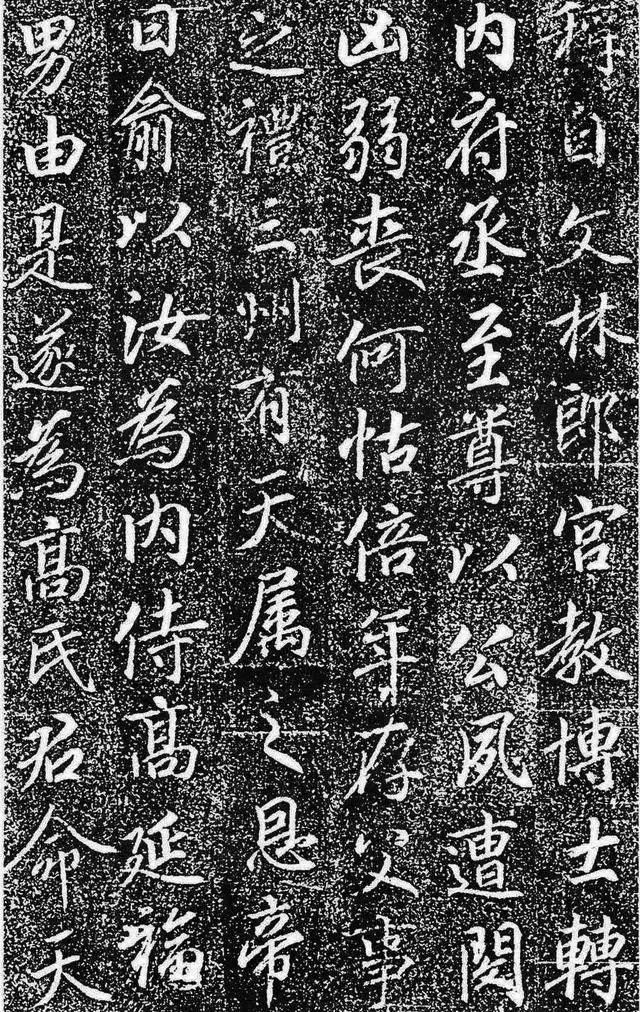 稱自文林郎宮教博士轉
内府丞至尊以公夙遭閔
凶弱喪何怙倍年存父事
之禮三州有天属之恩帝
曰俞以汝為内侍高延福
男由是遂為高氏君命天